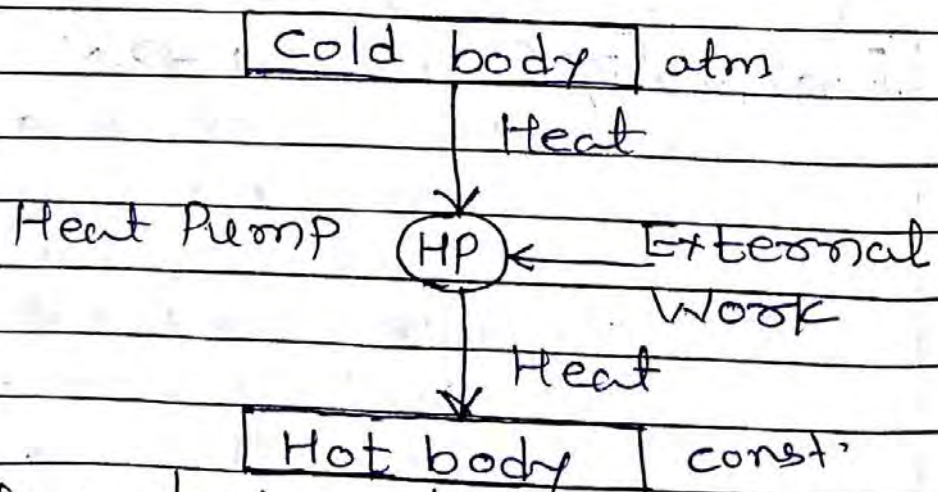 Cold body atm
Heat
Heat Pump HP External
Work
Heat
Hot body const'